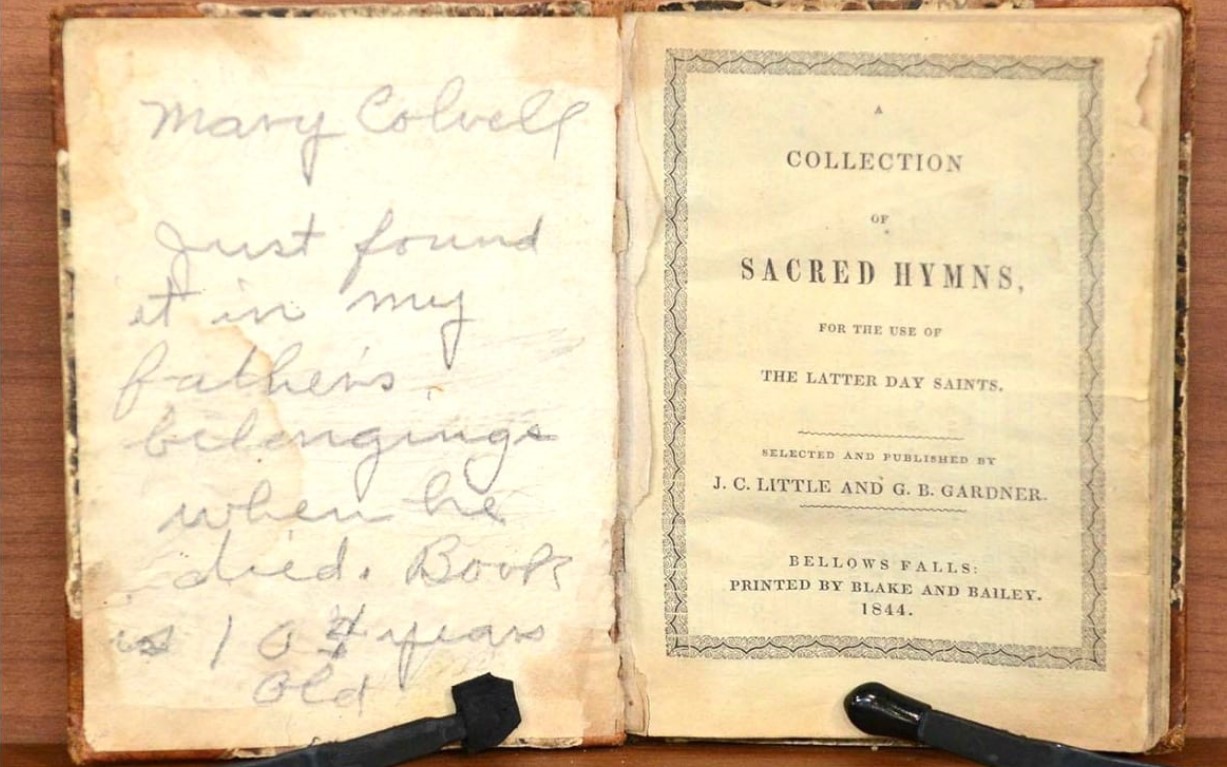 Mary Colvell
Just found
it in my
father's
belongings
when he
died. Book
is 104 years
old
A
COLLECTION
OF
SACRED HYMNS,
FOR THE USE OF
THE LATTER DAY SAINTS.
SELECTED AND PUBLISHED BY
J. C. LITTLE AND G. B. GARDNER.
BELLOWS FALLS:
PRINTED BY BLAKE AND BAILEY.
1844.